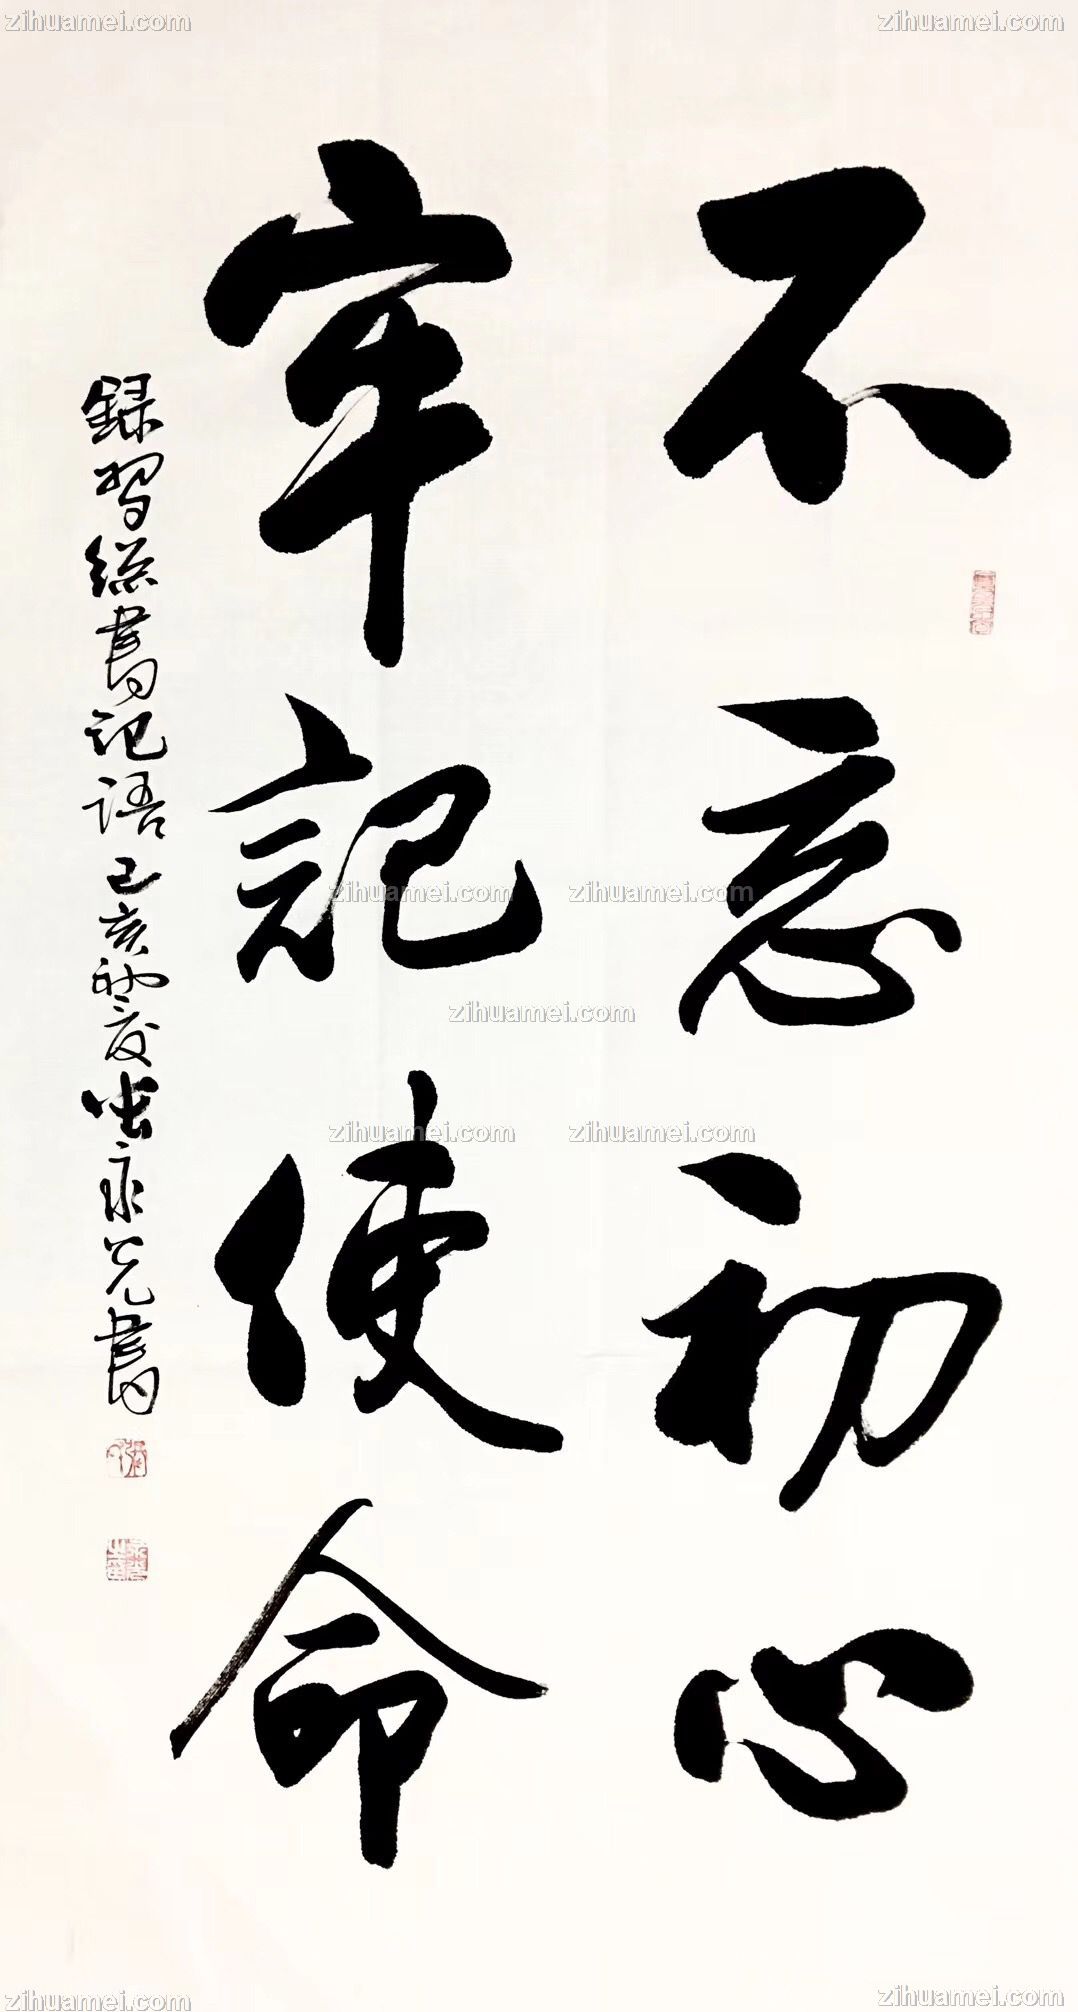 zihuamei.com zihuamei.com
不忘初心
牢記使命
録習總書記語己亥夏永光書
zihuamei.com zihuamei.com
zihuamei.com
zihuamei.com zihuamei.com
zihuamei.com zihuamei.com